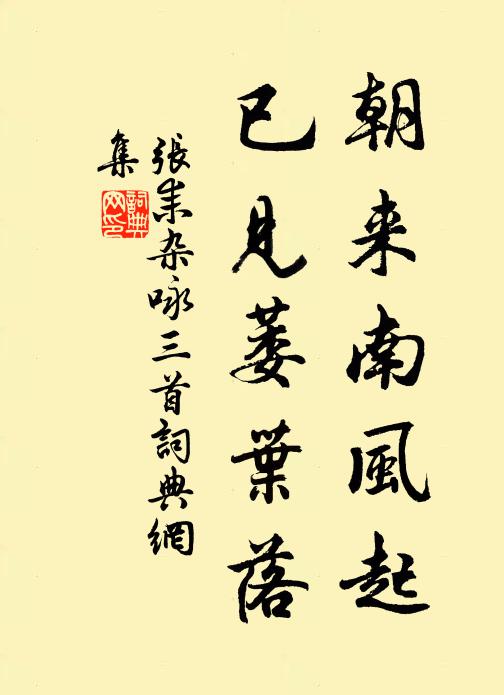 朝来南風起
已見萎葉落
張耒杂咏三首詞典網
集
詞典
网印